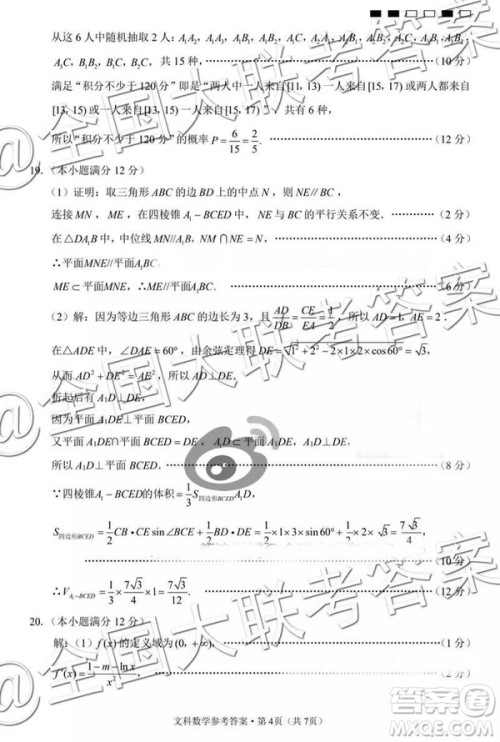 从这 6 人中随机抽取 2 人：
A₃C，B₁B₂，B₁C，B₂C，共 15 种，……………（10 分）
满足“积分不少于 120 分”即是“两人中一人来自[11, 13) 一人来自[13, 15) 或两人都来自
[13, 15) 或一人来自[13, 15) 一人来自[15, 17)”共有 6 种，
所以“积分不少于 120 分”的概率 P = 6/15 = 2/5. ……………（12 分）
19.（本小题满分 12 分）
（1）证明：取三角形 ABC 的边 BD 上的中点 N，则 NE∥BC，
连接 MN，ME，在四棱锥 A₁－BCED 中，NE 与 BC 的平行关系不变. ……………（2 分）
在△DA₁B 中，中位线 MN∥A₁B，NM∩NE＝N，……………（4 分）
∴平面MNE∥平面A₁BC.
ME⊂平面MNE，∴ME∥平面A₁BC. ……………（6 分）
（2）解：因为等边三角形 ABC 的边长为 3，且 AD/DB = CE/EA = 1/2，所以 AD=1，AE=2.
在△ADE 中，∠DAE=60°，由余弦定理得 DE=√(1²+2²−2×1×2×cos60°)=√3，
从而 AD²+DE²=AE²，所以 AD⊥DE.
折起后有 A₁D⊥DE，
因为平面 A₁DE⊥平面 BCED，
又平面 A₁DE∩平面 BCED＝DE，A₁D⊂平面 A₁DE，A₁D⊥DE，
所以 A₁D⊥平面 BCED. ……………（8 分）
∵四棱锥A₁－BCED的体积=1/3 S四边形BCED·A₁D，
S四边形BCED=1/2 CB·CE sin∠BCE+1/2 BD·DE=1/2×1×3×sin60°+1/2×2×√3=7√3/4，
∴V_A₁−BCED=1/3×7√3/4×1=7√3/12. ……………（12 分）
20.（本小题满分 12 分）
解：（1）f(x) 的定义域为 (0, +∞)，……………（1 分）
f′(x)=(1−m−ln x)/x²，
文科数学参考答案·第 4页（共 7页）
@全国大联考答案